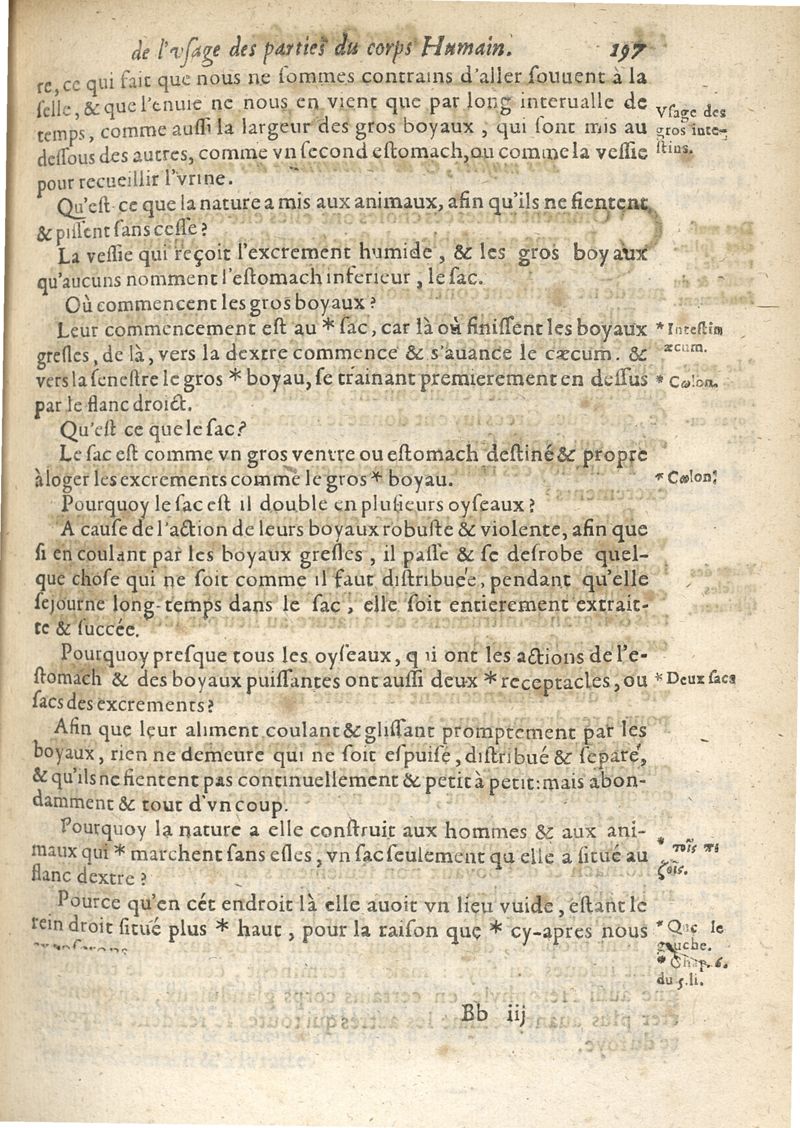 de l'vſage des parties du corps Humain. 197
re, ce qui fait que nous ne ſommes contrains d'aller ſouuent à la
ſelle, & que l'enuie ne nous en vient que par long interualle de
temps, comme auſſi la largeur des gros boyaux, qui ſont mis au
deſſous des autres, comme vn ſecond eſtomach, ou comme la veſſie
pour recueillir l'vrine.
Vſage des
gros inte-
ſtins.
Qu'eſt ce que la nature a mis aux animaux, afin qu'ils ne fientent
& piſſent ſans ceſſe?
La veſſie qui reçoit l'excrement humide, & les gros boyaux
qu'aucuns nomment l'eſtomach inferieur, le ſac.
Où commencent les gros boyaux?
Leur commencement eſt au * ſac, car là où finiſſent les boyaux
greſles, de là, vers la dextre commence & s'auance le cæcum. &
vers la ſeneſtre le gros * boyau, ſe trainant premierement en deſſus
par le flanc droict.
* Inteſtin
æcum.
* Cœlon.
Qu'eſt ce que le ſac?
Le ſac eſt comme vn gros ventre ou eſtomach deſtiné & propre
à loger les excrements comme le gros * boyau.
* Cœlon.
Pourquoy le ſac eſt il double en pluſieurs oyſeaux?
A cauſe de l'action de leurs boyaux robuſte & violente, afin que
ſi en coulant par les boyaux greſles, il paſſe & ſe deſrobe quel-
que choſe qui ne ſoit comme il faut diſtribuée, pendant qu'elle
ſejourne long-temps dans le ſac, elle ſoit entierement extrait-
te & ſuccée.
Pourquoy preſque tous les oyſeaux, qui ont les actions de l'e-
ſtomach & des boyaux puiſſantes ont auſſi deux * receptacles, ou
ſacs des excrements?
* Deux ſacs
Afin que leur aliment coulant & gliſſant promptement par les
boyaux, rien ne demeure qui ne ſoit eſpuiſé, diſtribué & ſeparé,
& qu'ils ne fientent pas continuellement & petit à petit: mais abon-
damment & tout d'vn coup.
Pourquoy la nature a elle conſtruit aux hommes & aux ani-
maux qui * marchent ſans eſles, vn ſac ſeulement qu elle a ſitué au
flanc dextre?
Pource qu'en cét endroit là elle auoit vn lieu vuide, eſtant le
rein droit ſitué plus * haut, pour la raiſon que * cy-apres nous
* Que le
gauche.
* Chap. 6.
du 5. li.
Bb iij